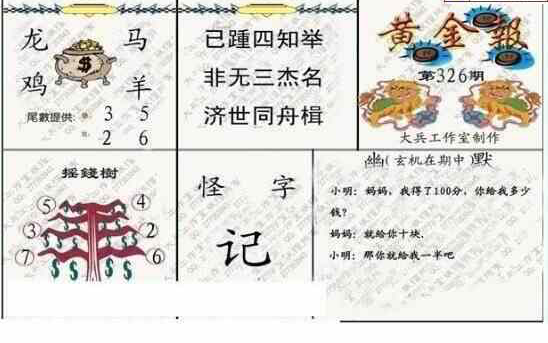 龙 马
鸡 羊
$
尾數提供: 3 5
2 6
已踵四知举
非无三杰名
济世同舟楫
黄金報
第326期
大兵工作室制作
摇錢樹
⑤ ④
③ ②
⑦ ⑥
$ $ $ $
$ $ $ $
$ $
怪 字
记
幽(玄机在期中)默
小明：妈妈，我得了100分，你给我多少
钱?
妈妈：就给你十块.
小明：那你就给我一半吧